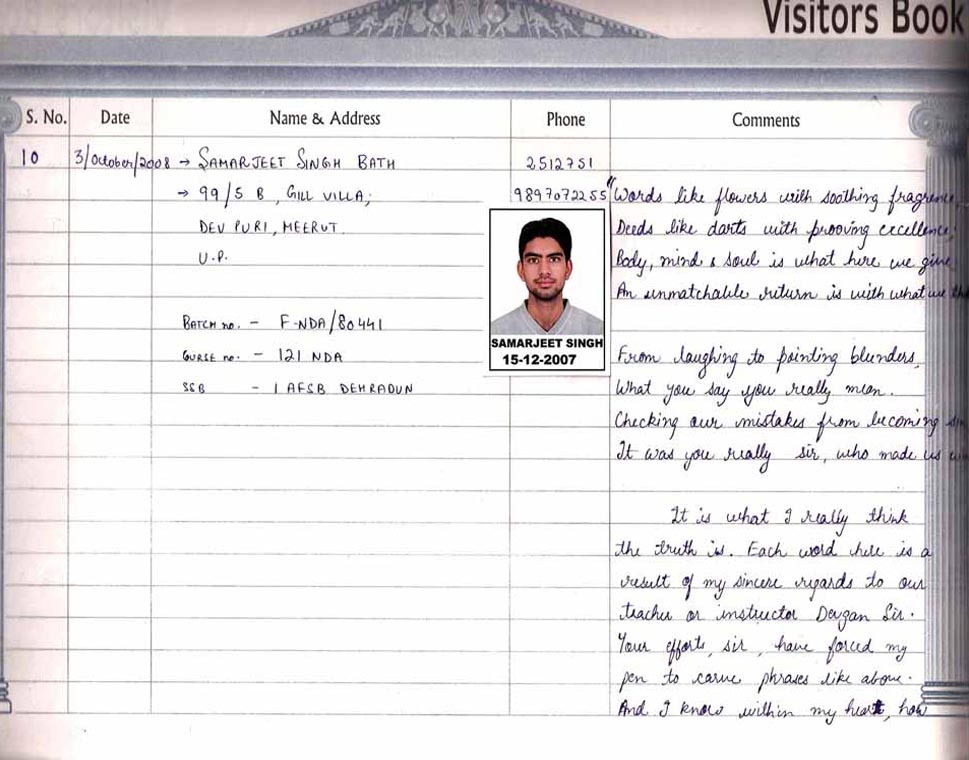 Visitors Book
S. No. Date Name & Address Phone Comments
10 3/October/2008 → SAMARJEET SINGH BATH 2512751
→ 99/5 B, GILL VILLA; 9897072255 "Words like flowers with soothing fragrence,
DEV PURI, MEERUT. Deeds like darts with prooving excellence;
U.P. Body, mind & soul is what here we give
An unmatchable return is with what we
BATCH no. - F-NDA/80441
SAMARJEET SINGH
15-12-2007
COURSE no. - 121 NDA From laughing to pointing blunders,
SSB - 1 AFSB DEHRADUN What you say you really mean.
Checking our mistakes from becoming
It was you really sir, who made us
It is what I really think
the truth is. Each word here is a
result of my sincere regards to our
teacher or instructor Devgan Sir.
Your efforts, sir, have forced my
pen to carve phrases like above.
And I know within my heart, how